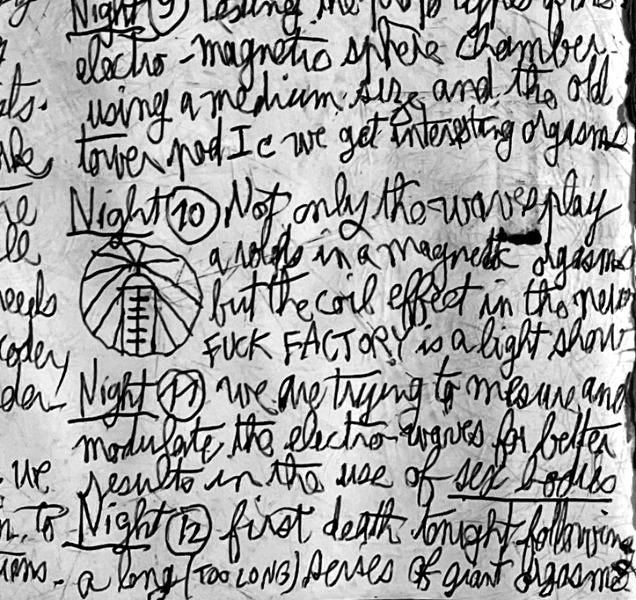 Night 9 Testing the
electro-magnetic sphere chamber.
using a medium size and the old
tower pod Ic we get interesting orgasms
Night 10 Not only the waves play
a role in a magnetic orgasms
but the coil effect in the new
FUCK FACTORY is a light show
Night 11 we are trying to mesure and
modulate the electro-waves for better
results in the use of sex bodies
Night 12 first death tonight following
a long (TOO LONG) series of giant orgasms